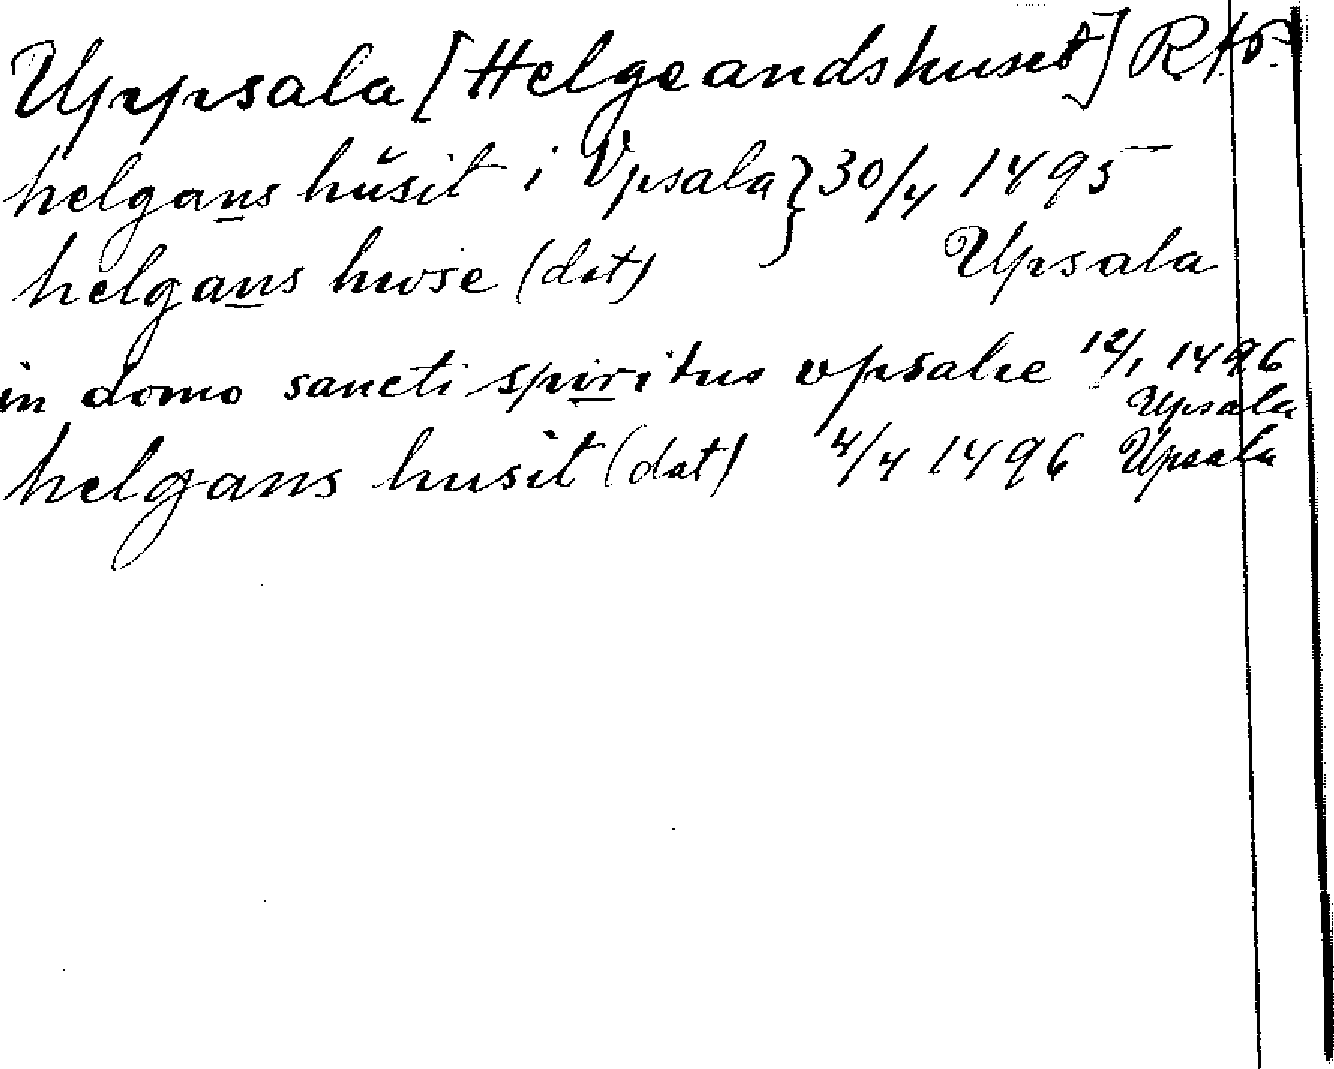 Uppsala [Helgeandshuset]
helgans husit i Vpsala } 30/4 1495
helgans hwse (dat) Upsala
in domo sancti spiritus vpsalie 12/1 1496
Upsala
helgans husit (dat) 4/4 1496 Upsala